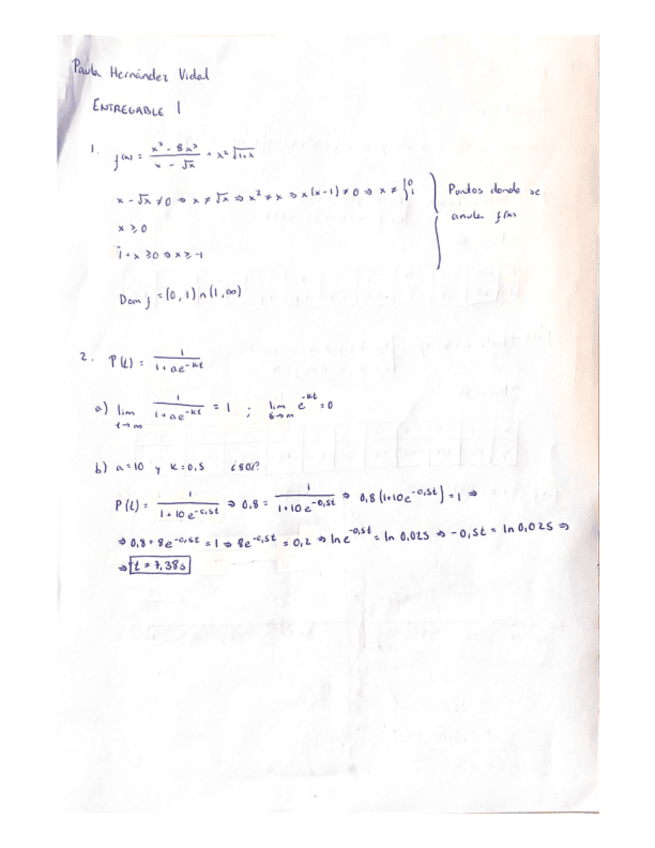 Paula Hernández Vidal
ENTREGABLE 1
1. f(x) = (x³ - 8x³)/(x - √x) + x² √(1+x)
x - √x ≠ 0 ⇒ x ≠ √x ⇒ x² ≠ x ⇒ x(x-1) ≠ 0 ⇒ x ≠ { 0 1 } Puntos donde se anula f(x)
x ≥ 0
1 + x ≥ 0 ⇒ x ≥ -1
Dom f = (0, 1) ∩ (1, ∞)
2. P(t) = 1/(1 + ae^-kt)
a) lim t→∞ 1/(1 + ae^-kt) = 1 ; lim t→∞ e^-kt = 0
b) a = 10 y k = 0,5 ¿80%?
P(t) = 1/(1 + 10e^-0,5t) ⇒ 0,8 = 1/(1 + 10e^-0,5t) ⇒ 0,8(1+10e^-0,5t) = 1 ⇒
⇒ 0,8 + 8e^-0,5t = 1 ⇒ 8e^-0,5t = 0,2 ⇒ ln e^-0,5t = ln 0,025 ⇒ -0,5t = ln 0,025 ⇒
⇒ t = 7,38s